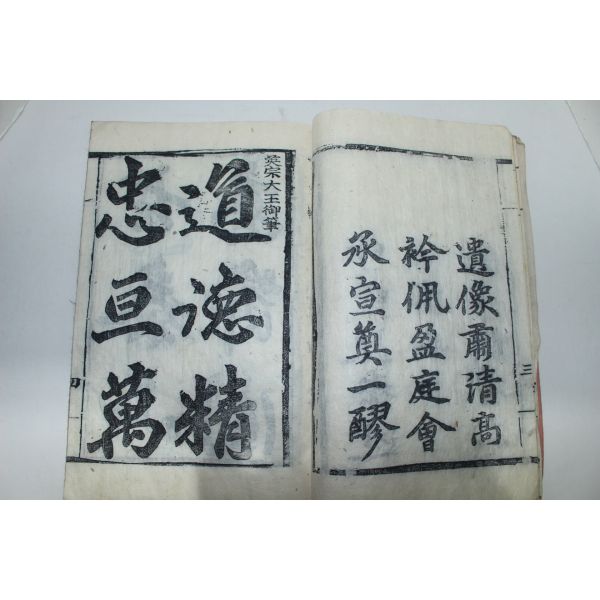 遺像肅清高
衿佩盈庭會
承宣奠一醪
三
英宗大王御筆
道德精
忠亘萬